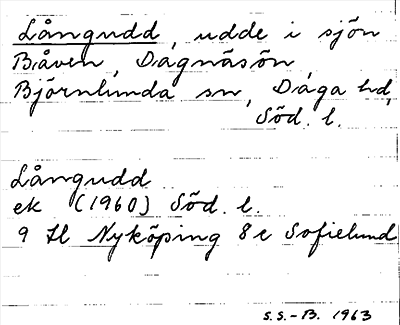 Långudd, udde i sjön
Båven, Dagnäsön
Björnlunda sn, Daga hd,
Söd. l.
Långudd
ek (1960) Söd. l.
9 H Nyköping 8 c Sofielund
S.S.-B. 1963